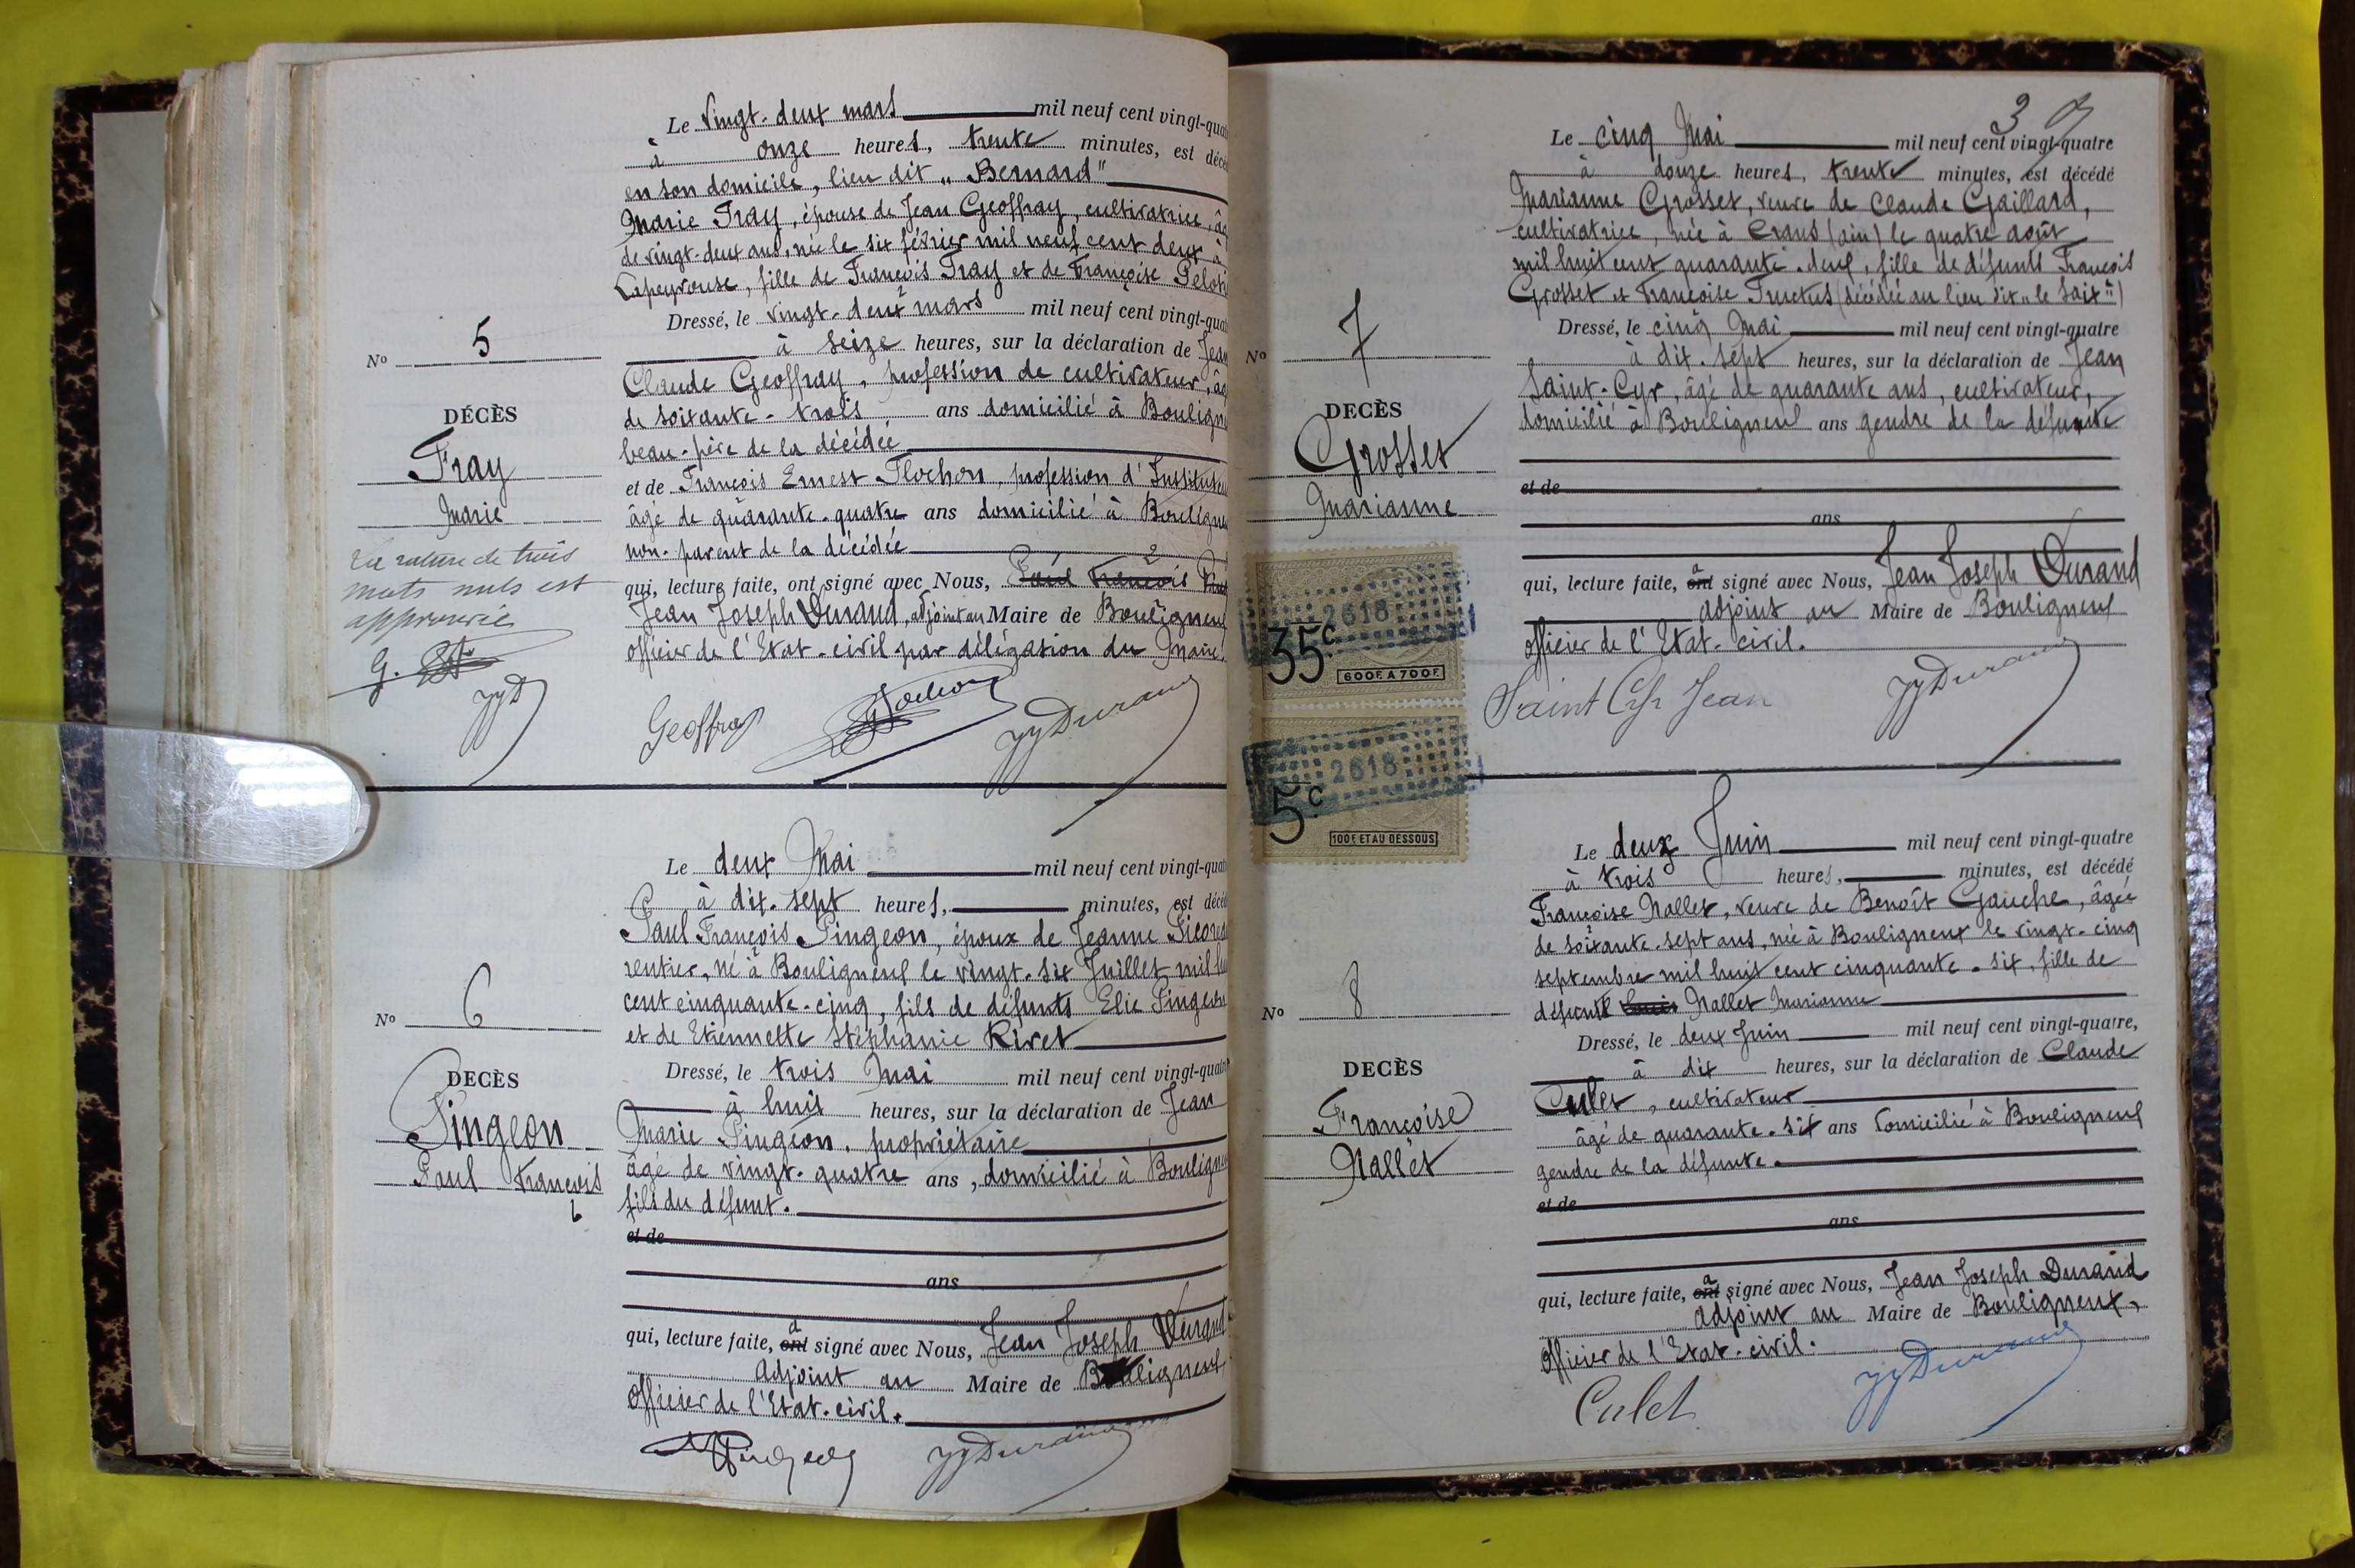 Le vingt-deux mars mil neuf cent vingt-quat
à onze heures, trente minutes, est décé
en son domicile, lieu dit „ Bernard"
Marie Fray, épouse de Jean Geoffray, cultivatrice, âg
de vingt-deux ans, née le six février mil neuf cent deux à
Lapeyrouse, fille de François Fray et de Françoise
Dressé, le vingt-deux mars mil neuf cent vingt-quat
à seize heures, sur la déclaration de Jean
Claude Geoffray, profession de cultivateur, âg
de soixante-trois ans domicilié à Bouligne
beau-père de la décédée
et de François Ernest Flochon, profession d'Instituteu
âgé de quarante-quatre ans domicilié à Bouligne
non-parent de la décédée
qui, lecture faite, ont signé avec Nous, Paul François
Jean Joseph Durand, adjoint au Maire de Bouligneux
Officier de l'Etat-civil par délégation du Maire.
N° 5
DÉCÈS
Fray
Marie
La rature de trois
mots nuls est
approuvée
JJD
Geoffray
Flochon
JJDurand
Le deux Mai mil neuf cent vingt-quat
à dix-sept heures, minutes, est décé
Paul François Pingeon, époux de Jeanne
rentier, né à Bouligneux le vingt-six Juillet mil hui
cent cinquante-cinq, fils de défunts Elie Pingeon
et de Etiennette Stéphanie Rivet
Dressé, le trois Mai mil neuf cent vingt-quatr
à huit heures, sur la déclaration de Jean
Marie Pingeon, propriétaire
âgé de vingt-quatre ans, domicilié à Bouligne
fils du défunt.
et de
ans
qui, lecture faite, ont a signé avec Nous, Jean Joseph Durand
Adjoint au Maire de Bouligneux
Officier de l'Etat-civil.
N° 6
DECÈS
Pingeon
Paul François
Pingeon
JJDurand
3
Le cinq Mai mil neuf cent vingt-quatre
à douze heures, trente minutes, est décédé
Marianne Grosset, veuve de Claude Gaillard,
cultivatrice, née à Crans (ain) le quatre août
mil huit cent quarante-deux, fille de défunts François
Grosset et Françoise (décédée au lieu dit „le Saix")
Dressé, le cinq Mai mil neuf cent vingt-quatre
à dix-sept heures, sur la déclaration de Jean
Saint-Cyr, âgé de quarante ans, cultivateur,
domicilié à Bouligneux ans gendre de la défunte
et de
ans
qui, lecture faite, ont a signé avec Nous, Jean Joseph Durand
adjoint au Maire de Bouligneux
Officier de l'Etat-civil.
N° 7
DECÈS
Grosset
Marianne
2618
35c
600F. A 700F.
2618
5c
100F. ET AU DESSOUS
Saint Cyr Jean
JJDurand
Le deux Juin mil neuf cent vingt-quatre
à trois heures, minutes, est décédé
Françoise Nallet, veuve de Benoît Gauche, âgée
de soixante-sept ans, née à Bouligneux le vingt-cinq
septembre mil huit cent cinquante-six, fille de
défunte Louis Nallet Marianne
Dressé, le deux Juin mil neuf cent vingt-quatre,
à dix heures, sur la déclaration de Claude
Culet, cultivateur
âgé de quarante-six ans domicilié à Bouligneux
gendre de la défunte.
et de
ans
qui, lecture faite, ont a signé avec Nous, Jean Joseph Durand
adjoint au Maire de Bouligneux,
Officier de l'Etat-civil.
N° 8
DECÈS
Françoise
Nallet
Culet
JJDurand